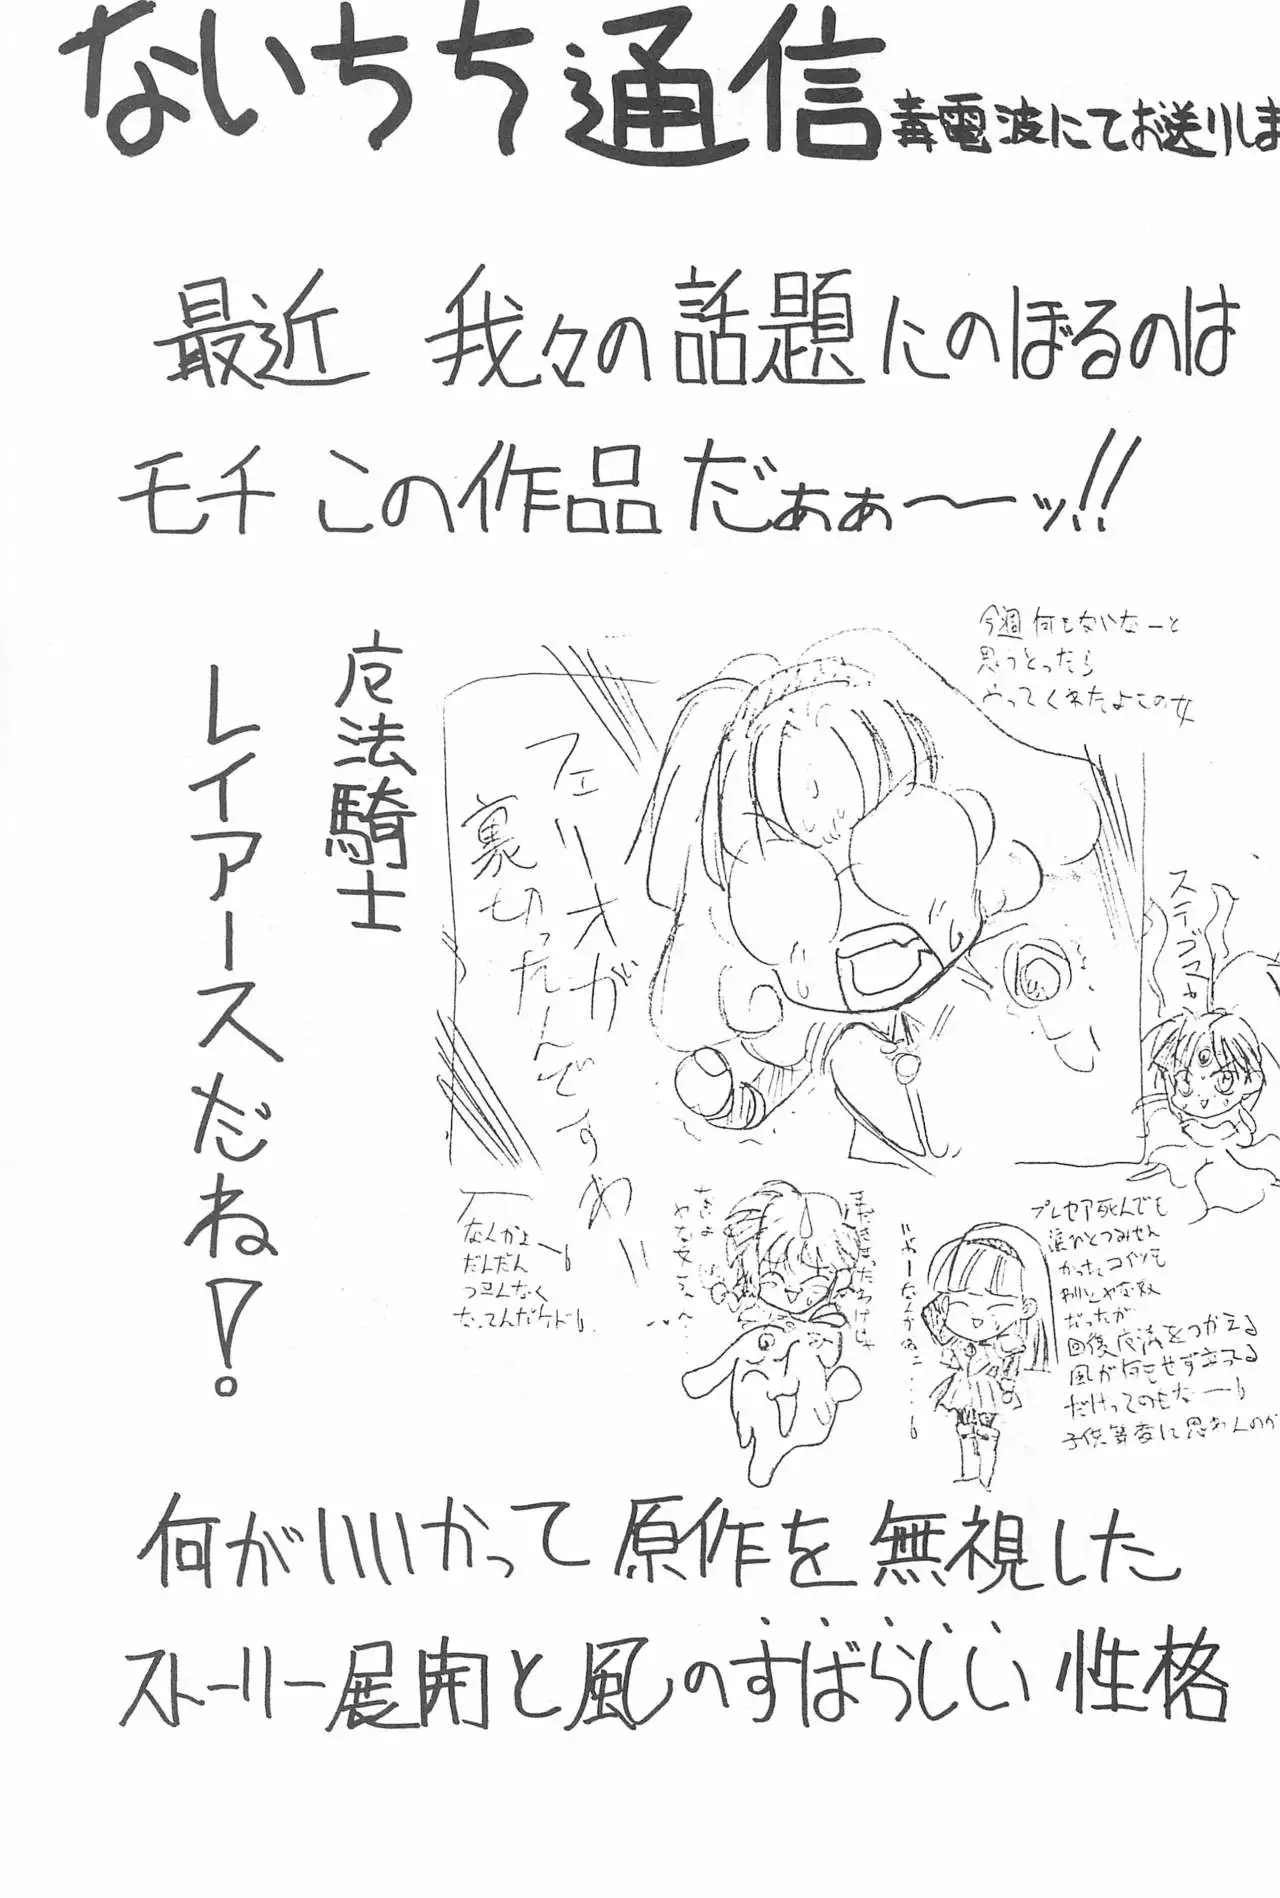 ないちち通信
毒電波にてお送りしま
最近 我々の話題にのぼるのは
モチこの作品だぁぁ〜ーッ!!
魔法騎士
レイアースだね!
今週何もないなーと
思うとったら
やってくれたよこの女
フェリオが
裏切ったんですわ!!
なんかよーっ
だんだん
つまんなく
なってんだケドっ
プレセア死んでも
涙ひとつみせん
かった、コイツも
だったが
回復魔法をつかえる
風が何もせず立ってる
だけってのもなーっ
何がいいかって原作を無視した
ストーリー展開と風のすばらしい性格